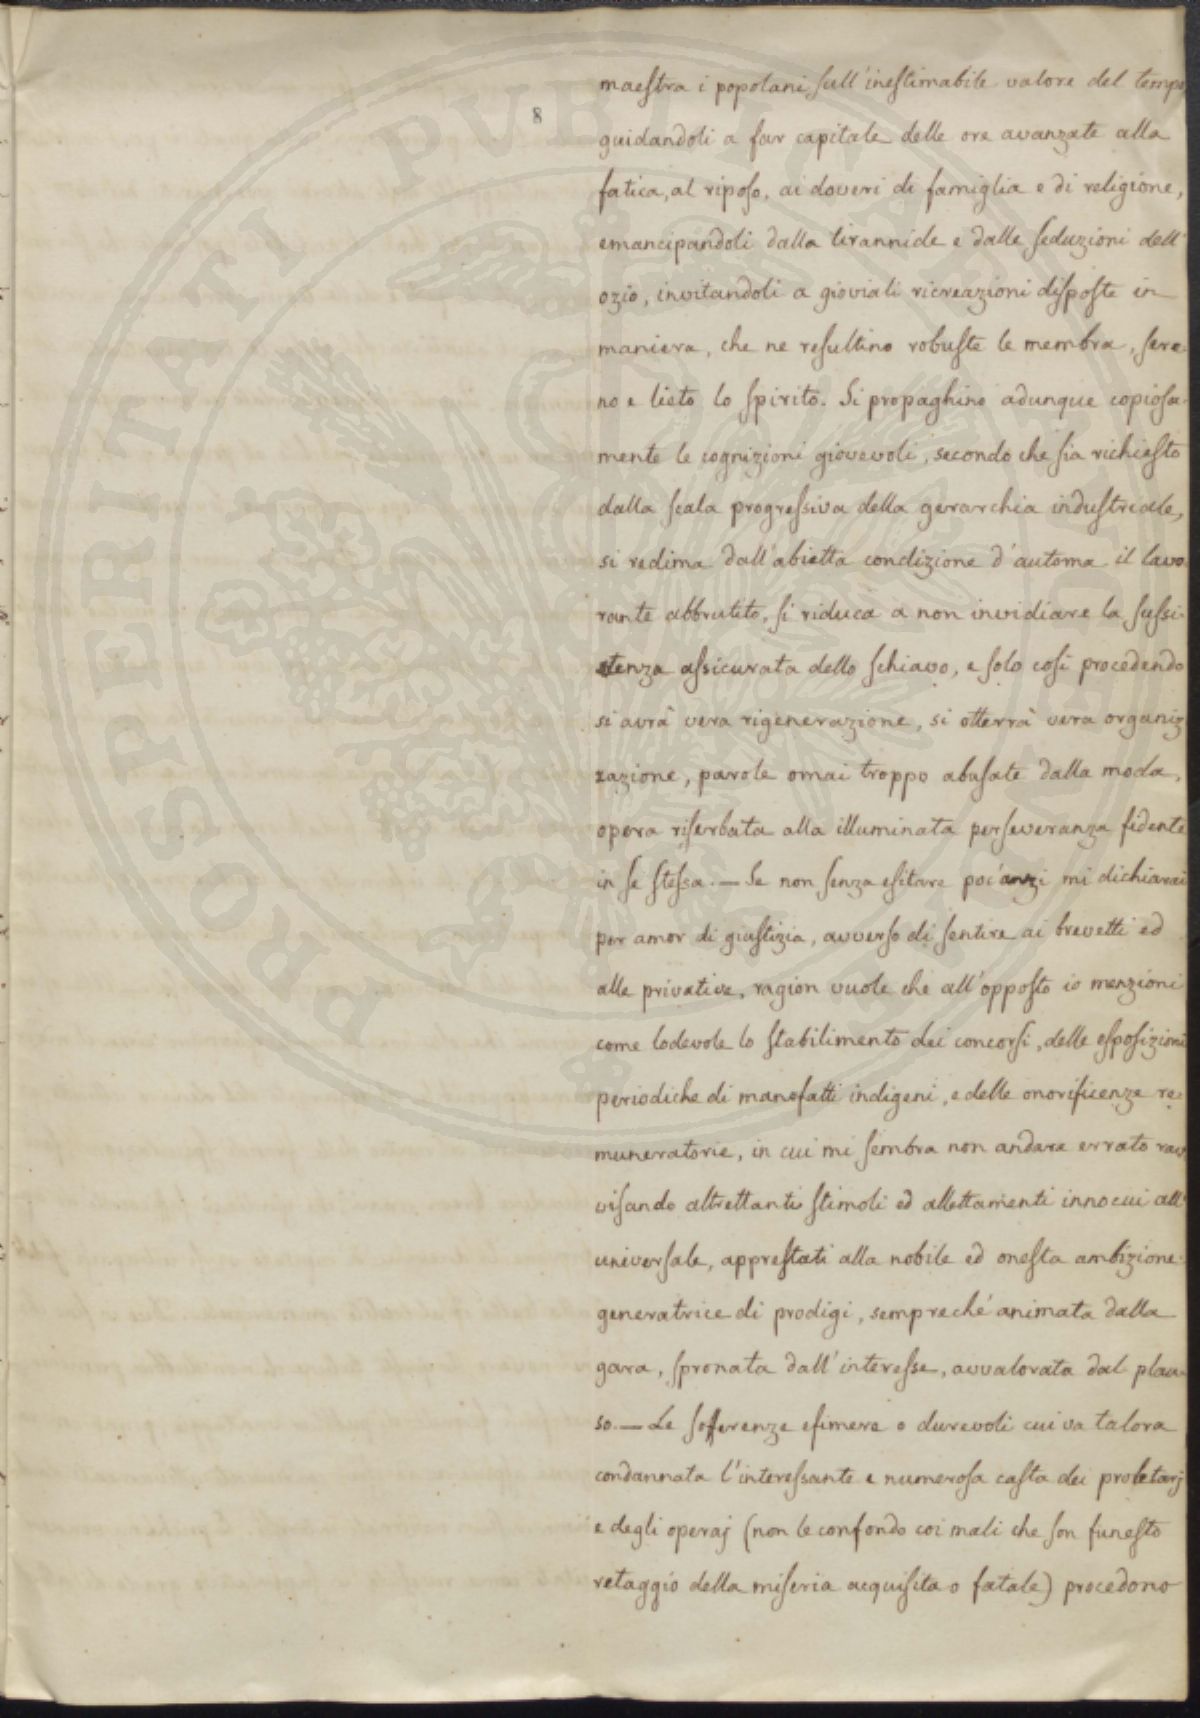 maestra i popolani sull'inestimabile valore del tempo
8
guidandoli a far capitale delle ore avanzate alla
fatica, al riposo, ai doveri di famiglia e di religione,
emancipandoli dalla tirannide e dalle seduzioni dell'
ozio, invitandoli a gioviali ricreazioni disposte in
maniera, che ne resultino robuste le membra, sere-
no e lieto lo spirito. Si propaghino adunque copiosa-
mente le cognizioni giovevoli, secondo che sia richiesto
dalla scala progressiva della gerarchia industriale,
si redima dall'abietta condizione d'automa il lavo-
rante abbrutito, si riduca a non invidiare la sussi-
stenza assicurata dello schiavo, e solo così procedendo
si avrà vera rigenerazione, si otterrà vera organiz
zazione, parole omai troppo abusate dalla moda,
opera riserbata alla illuminata perseveranza fidente
in se stessa. — Se non senza esitare poc'anzi mi dichiarai
per amor di giustizia, avverso di sentire ai brevetti ed
alle privative, ragion vuole che all'opposto io menzioni
come lodevole lo stabilimento dei concorsi, delle esposizioni
periodiche di manofatti indigeni, e delle onorificenze re-
muneratorie, in cui mi sembra non andare errato rav
visando altrettanti stimoli ed allettamenti innocui all'
universale, apprestati alla nobile ed onesta ambizione
generatrice di prodigi, sempreché animata dalla
gara, spronata dall'interesse, avvalorata dal plau-
so. — Le sofferenze efimere o durevoli cui va talora
condannata l'interessante e numerosa casta dei proletarj
e degli operaj (non le confondo coi mali che son funesto
retaggio della miseria acquisita o fatale) procedono
PROSPERITATI PVBLICAE AVGENDAE